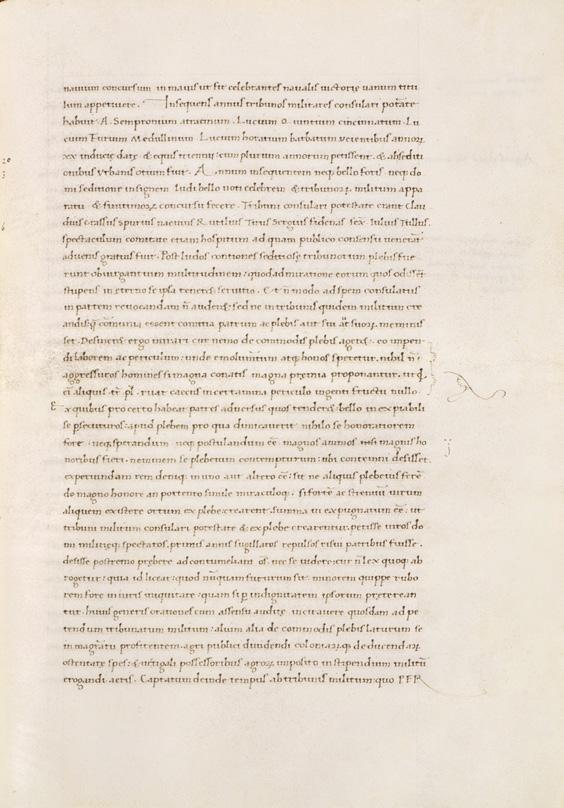 nauium concursum in maius ut fit celebrantes naualis uictorie uanum titu
lum appetiuere. Insequens annus tribunos militares consulari potāte
habuit. A. Sempronium atratinum. Lucium Q uintium cincinatum. Lu
cium Furium Medullinum. Lucium horatium barbatum. veientibus annoꝝ
xx induciȩ datȩ & equis triennii cum plurium annorum petissent. & a sediti
onibus Vrbanis otium fuit. Annum insequentem neqꝫ bello foris neqꝫ do
mi seditione insignem ludi bello uoti celebrem & tribunoꝝ militum appa
ratu & finitimoꝝ concursu fecere. Tribuni consulari potestate erant Clau
dius crassus spurius naeuius Rutilius Titus Sergius fidenas sex. iulius Tullus.
spectaculum comitate etiam hospitum ad quam publico consensu uenerāt
aduenis gratius fuit. Post ludos contiones seditiosȩ tribunorum plebis fue
runt obiurgantium multitudinem: quod admiratione eorum quos odissēt
stupens in eterno se ipsa teneret seruitio. & n̄ modo ad spem consulatus
in partem reuocandam n̄ auderet: sed ne in tribunis quidem militum cre
andis: qȩ cōmunia essent comitia patrum ac plebis aut sui aūt suoꝝ meminis
set. Desineret ergo mirari cur nemo de commodis plebis ageret. eo inpen
di laborem ac periculum: unde emolumētum atqꝫ honos speretur. nihil n̄
aggressuros homines si magna conatis magna premia proponantur. ut qꝫ
aliquis tr̄. pl̄. ruat caecus in certamina periculo ingenti fructu nullo
Ex quibus pro certo habeat patres aduersus quos tenderet bello inexpiabili
se psecuturos: apud plebem pro qua dimicauerit nihilo se honoratiorem
fore: neqꝫ sperandum neqꝫ postulandum eē. magnos animos nisi magnis ho
noribus fieri. neminem se plebeium contempturum: ubi contemni desissēt.
experiundam rem deniqꝫ in uno aut altero eē: sit ne aliquis plebeius ferēdo
do magno honore an portento simile miraculoqꝫ si fortē ac strenuū uirum
aliquem existere ortum ex plebe creatent. summa ui expugnatum eē: ut
tribuni militum consulari potestate & ex plebe crearentur. petisse uiros do
mi militieqꝫ spectatos. primis annis sugillatos repulsos risui patribus fuisse.
desisse postremo prebere ad contumeliam os. nec se uidere: cur n̄ lex quoqꝫ ab
rogetur: quia id liceat: quod nūquam futurum sit. minorem quippe rubo
rem fore in iuris iniquitate: quam si ꝑ indignitatem ipsorum preterean
tur. huius generis orationes cum assensu auditȩ incitauere quosdam ad pe
tendum tribunatum militum: alium alia de commodis plebis laturum se
in magr̄atu profitentem. agri publici diuidendi coloniarūqꝫ deducendar.
ostentatȩ spes: & uectigali possessoribus agroꝝ imposito in stipendium militū
erogandi aeris. Captatum deinde tempus ab tribunis militum: quo PER